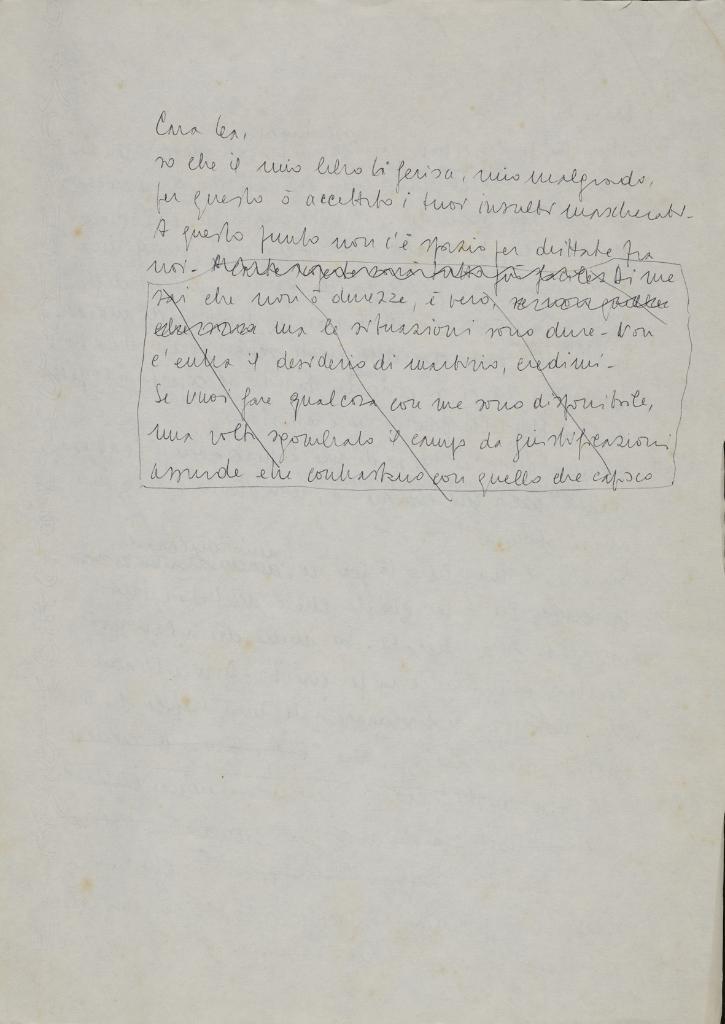 Cara Lea,
so che il mio libro ti ferisce, mio malgrado,
per questo ò accettato i tuoi insulti mascherati.
A questo punto non c'è spazio per dritte fra
noi. Di me
sai che non ò durezze, è vero,
ma le situazioni sono dure. Non
c'entra il desiderio di martirio, credimi.
Se vuoi fare qualcosa con me sono disponibile,
una volta sgombrato il campo da giustificazioni
assurde che contrastano con quello che capisco